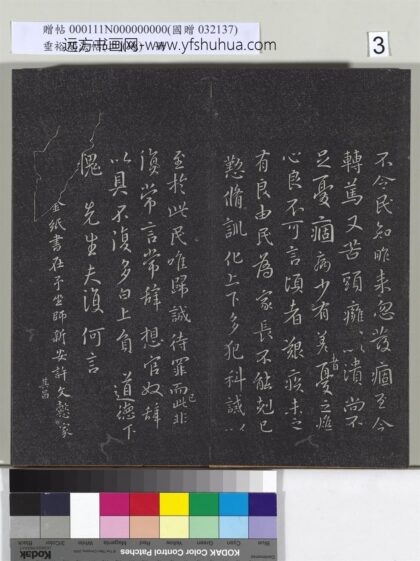 贈帖 000111N000000000(國贈 032137)
远方书画网-www.yfshuhua.com
3
不令民知昨來忽發痼至今
轉篤又苦頭癰以潰尚不
足憂痼病少有差者憂之燋
心良不可言頃者艱疾未之
有良由民為家長不能剋己
懃脩訓化上下多犯科誡以
至於此民唯歸誠待罪而已此非
復常言常辭想官奴辭
以具不復多白上負道德下
愧先生夫復何言
金紙書在予坐師新安許文懿家
其昌
KODAK Color Control Patches
Blue
Cyan
Green
Yellow
Red
Magenta